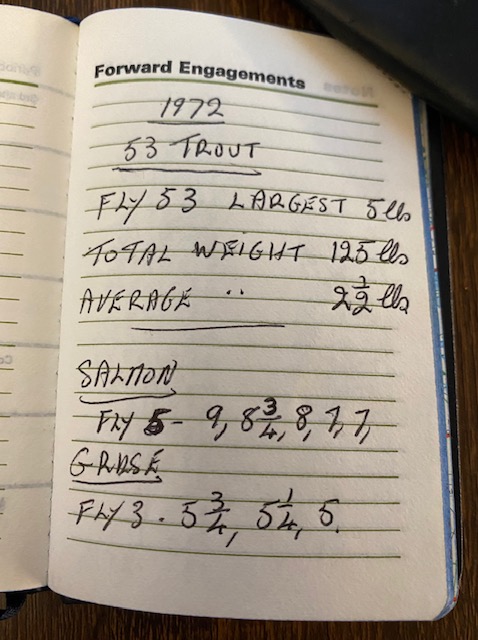 Forward Engagements
1972
53 TROUT
FLY 53 LARGEST 5 lbs
TOTAL WEIGHT 125 lbs
AVERAGE " 2 1/2 lbs
SALMON
FLY 5 - 9, 8 3/4, 8, 7, 7,
GRILSE
FLY 3 . 5 3/4, 5 1/4, 5.